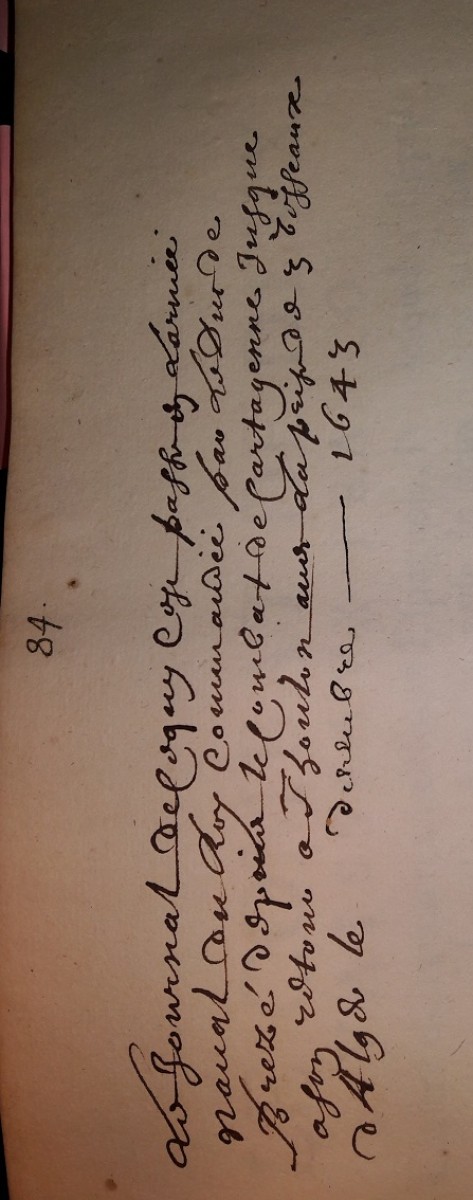 84.
Le Journal de ce qui s'est passé en Larmée
navalle du Roy Commandée par Le Duc de
Brezé depuis le Combat de Cartagenne Jusque
a son retour a Toulon avec La prise de 3 Vesseaux
d'Alger le decembre — 1643